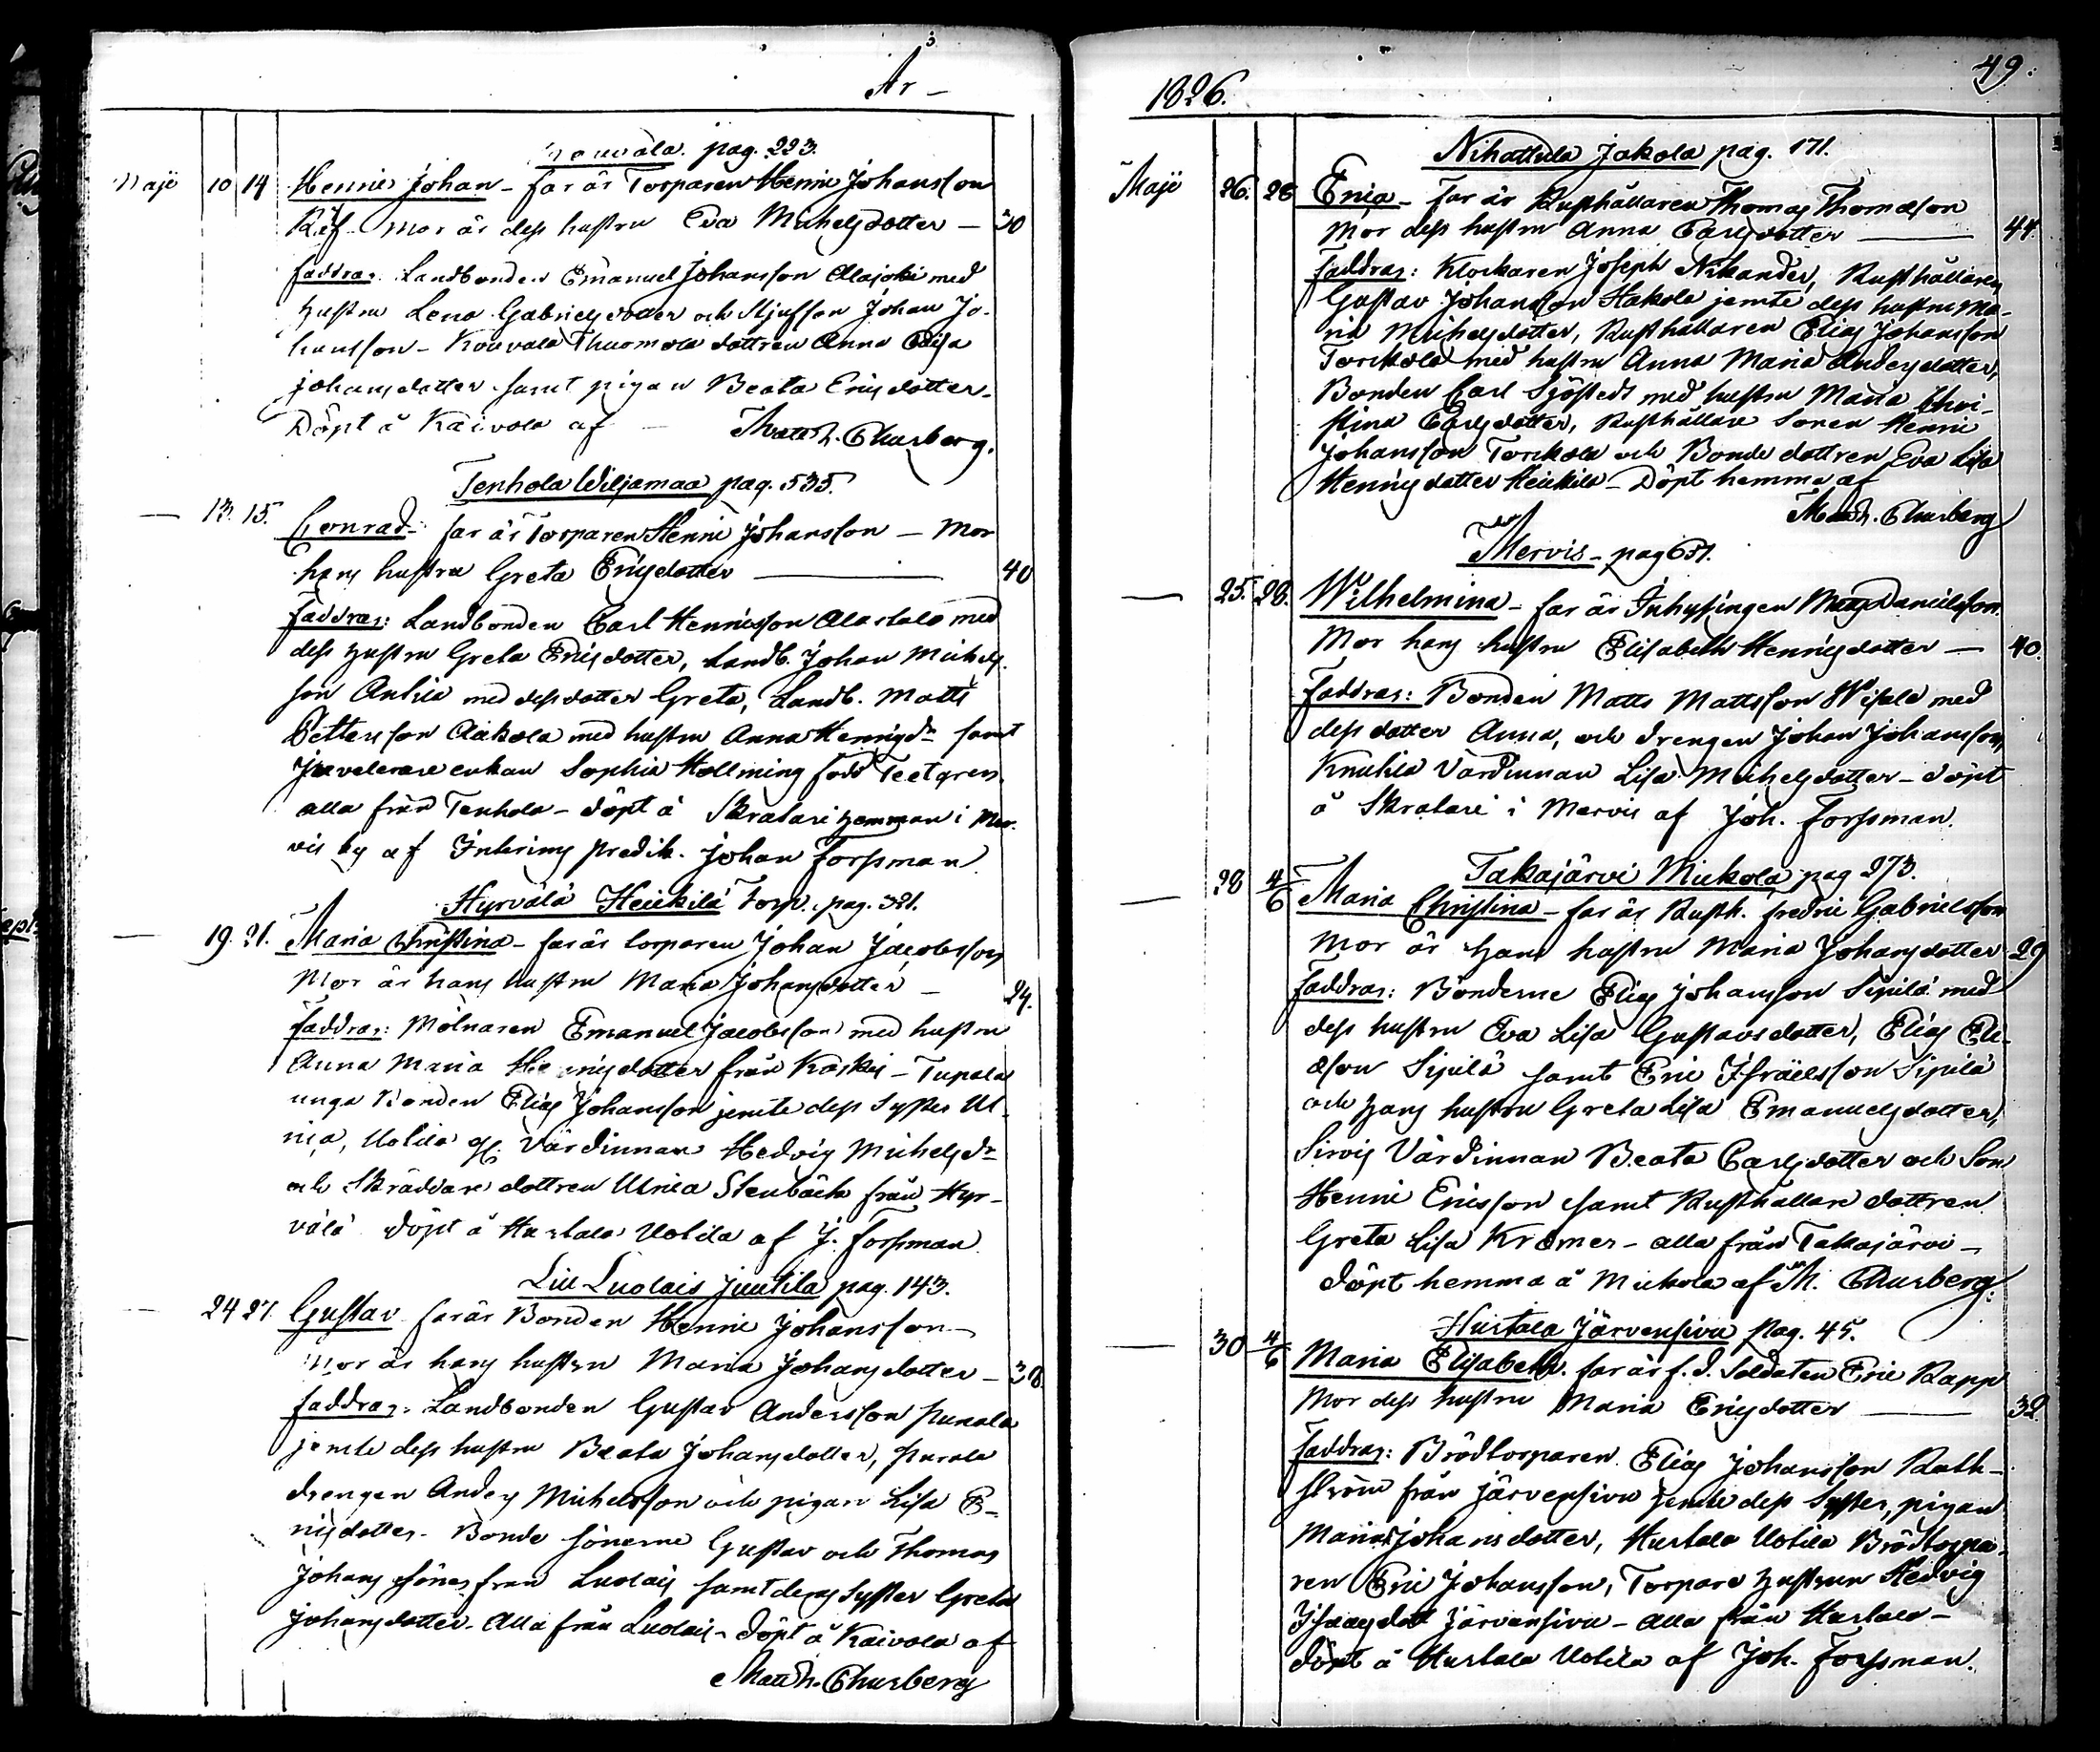 År –
Kouvala. pag. 223.
Maji 10 14 Henric Johan – far är Torparen Henric Johansson
Räf – mor är dess hustru Eva Michelsdotter — 30
faddrar. Landbonden Emanuel Johansson Alajoki med
hustru Lena Gabrielsdotter och Stjufson Johan Jo-
hansson – Kouvala Thuomola dottren Anna Caisa
Johansdotter samt pigan Beata Ericsdotter –
Döpt å Kaivola af — Matth. Churberg.
Tenhola Wiljamaa pag. 535.
— 13. 15. Conrad – far är Torparen Henric Johansson — Mor
hans hustru Greta Ericsdotter — 40
faddrar: Landbonden Carl Henricsson Alastalo med
dess hustru Greta Ericsdotter, Landb. Johan Michels-
son Ankia med dess dotter Greta, Landb. Matts
Pettersson Aakola med hustru Anna Henricsdr samt
Juvelerare enkan Sophia Hollming född Teetgren
alla från Tenhola – döpt å Skratari hemman i Mer-
vis by af Inhrings predik. Johan Forssman
Hyrvälä Heickilä Torp. pag. 321.
— 19. 21. Maria Christina – far är torparen Johan Jacobsson
Mor är hans hustru Maria Johansdotter — 24.
faddrar: Mölnaren Emanuel Jacobsson med hustru
Anna Maria Henricsdotter från Kåskis – Tupala
unga Bonden Elias Johansson jemte dess Syster Ul-
rica, Uotila gl. Värdinnan Hedvig Michelsdr
och Skräddare dottren Ulrica Stenbäck från Hyr-
välä. döpt å Hurtala Uotila af J. Forssman
Lill Luolais Juutila pag. 143.
— 24 27. Gustav far är Bonden Henric Johansson –
Mor är hans hustru Maria Johansdotter – 38.
faddrar: Landbonden Gustav Andersson Punola
jemte dess hustru Beata Johansdotter, Purala
drengen Anders Michelsson och pigan Lisa E-
ricsdotter – Bonde sönerne Gustav och Thomas
Johans söner från Luolais samt deras Syster Greta
Johansdotter – Alla från Luolais – döpt å Kaivola af
Matth. Churberg
1826.
49.
Nihattula Jakola pag. 171.
Maji 26. 28 Erica – far är Rusthållaren Thomas Thomasson
Mor dess hustru Anna Carlsdotter — 44.
faddrar: Klockaren Joseph Nikander, Rusthållaren
Gustav Johansson Hakola jemte dess hustru Ma-
ria Michelsdotter, Rusthållaren Elias Johansson
Torckola med hustru Anna Maria Andersdotter,
Bonden Carl Sjöstedt med hustru Maria Chri-
stina Carlsdotter, Rusthållare Sonen Henric
Johansson Torckola och Bonde dottren Eva Lisa
Henricsdotter Heickilä – Döpt hemma af
Matth. Churberg
Mervis – pag 631.
— 25. 28. Wilhelmina – far är Inhysingen Matts Danielsson.
Mor hans hustru Elisabeth Henricsdotter — 40.
faddrar: Bonden Matts Mattsson Wisala med
dess dotter Anna, och drengen Johan Johansson,
Knuhla Värdinnan Lisa Michelsdotter – döpt
å Skratari i Mervis af Joh. Forssman.
Takajärvi Mickola pag 273.
— 28 4/6 Maria Christina – far är Rusth. Fredric Gabrielsson
Mor är hans hustru Maria Johansdotter 29
faddrar: Bönderne Elias Johansson Sipilä med
dess hustru Eva Lisa Gustavsdotter, Elias Eli-
asson Sipilä samt Eric Israelsson Sipilä
och hans hustru Greta Lisa Emanuelsdotter,
Sirvis Värdinnan Beata Carlsdotter och Son
Henric Ericsson samt Rusthållare dottren
Greta Lisa Kramer – alla från Takajärvi –
döpt hemma å Mickola af M. Churberg.
Hurtala Järvensivu pag. 45.
— 30 4/6 Maria Elisabeth. far är f. d. Soldaten Eric Rapp
Mor dess hustru Maria Ericsdotter — 32
faddrar: Brödtorparen Elias Johansson Rath-
ström från Järvensivu jemte dess Syster, pigan
Maria Johansdotter, Hurtala Uotila Brödtorpa-
ren Eric Johansson, Torpare hustrun Hedvig
Isaacsdott Järvensivu – alla från Hurtala –
döpt å Hurtala Uotila af Joh. Forssman.